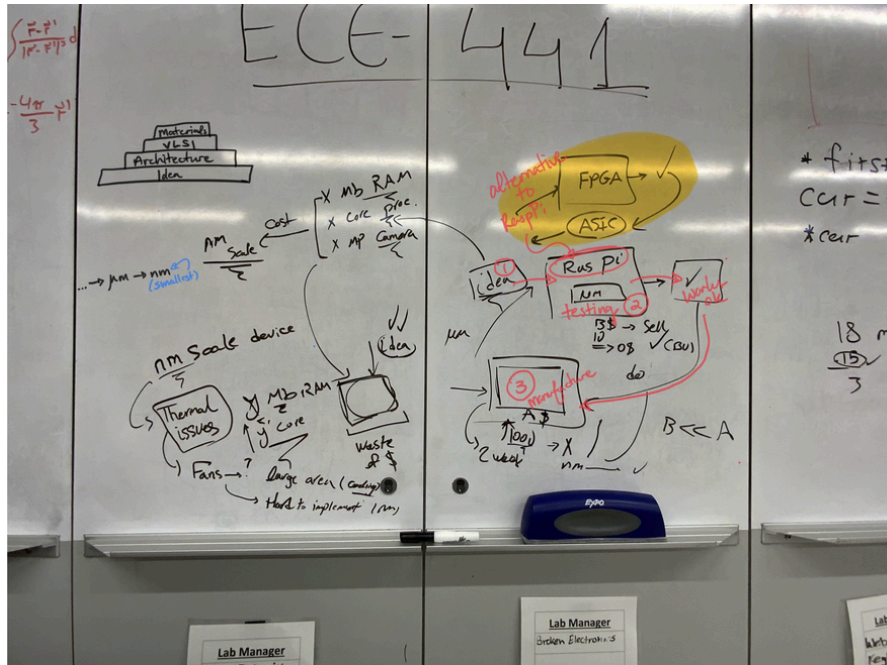 ECE-441
Materials
VLSI
Architecture
Idea
X Mb RAM
X Core proc.
X MP Camera
Cost
nm
Scale
...→ μm → nm
(smallest)
nm Scale device
Thermal
issues
Fans → ?
y Mb RAM
y' Core
large area
Hard to implement (nm)
✓✓
idea
Waste
of $
alternative
to
RaspPi
FPGA → ✓
ASIC
idea
1
Ras Pi
μm
testing 2
✓
works
ok
μm
B$ → Sell
10
=> 08 ✓
3
manufacture
A $
1001
2 week
→ X
nm
✓
do
B << A
* first
Car =
*car
18
15 ✓
3
-4π
3
r'
EXPO
Lab Manager
Lab Manager
Broken Electronics
Lab